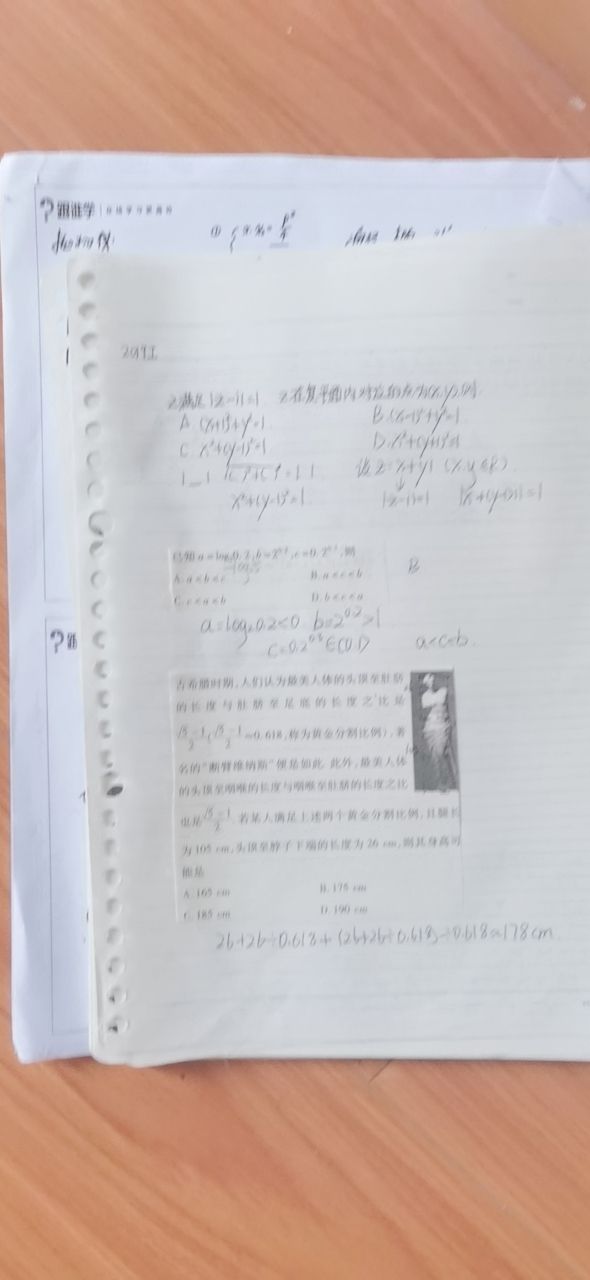 跟谁学
2019 I
z满足|z-i|=1 z在复平面内对应的点为(x,y),则
A. (x+1)²+y²=1 B. (x-1)²+y²=1
C. x²+(y-1)²=1 D. x²+(y+1)²=1
设 z=x+yi (x,y∈R)
x²+(y-1)²=1 |z-i|=1 |x+(y-1)i|=1
已知 a=log₂0.2,b=2^0.2,c=0.2^0.3,则 B
A. a<b<c B. a<c<b
C. c<a<b D. b<c<a
a=log₂0.2<0 b=2^0.2>1
c=0.2^0.3∈(0,1) a<c<b.
古希腊时期,人们认为最美人体的头顶至肚脐
的长度与肚脐至足底的长度之比是
(√5-1)/2((√5-1)/2≈0.618,称为黄金分割比例),著
名的“断臂维纳斯”便是如此.此外,最美人体
的头顶至咽喉的长度与咽喉至肚脐的长度之比
也是(√5-1)/2.若某人满足上述两个黄金分割比例,且腿长
为105 cm,头顶至脖子下端的长度为26 cm,则其身高可
能是
A. 165 cm B. 175 cm
C. 185 cm D. 190 cm
26+26÷0.618+(26+26÷0.618)÷0.618≈178cm